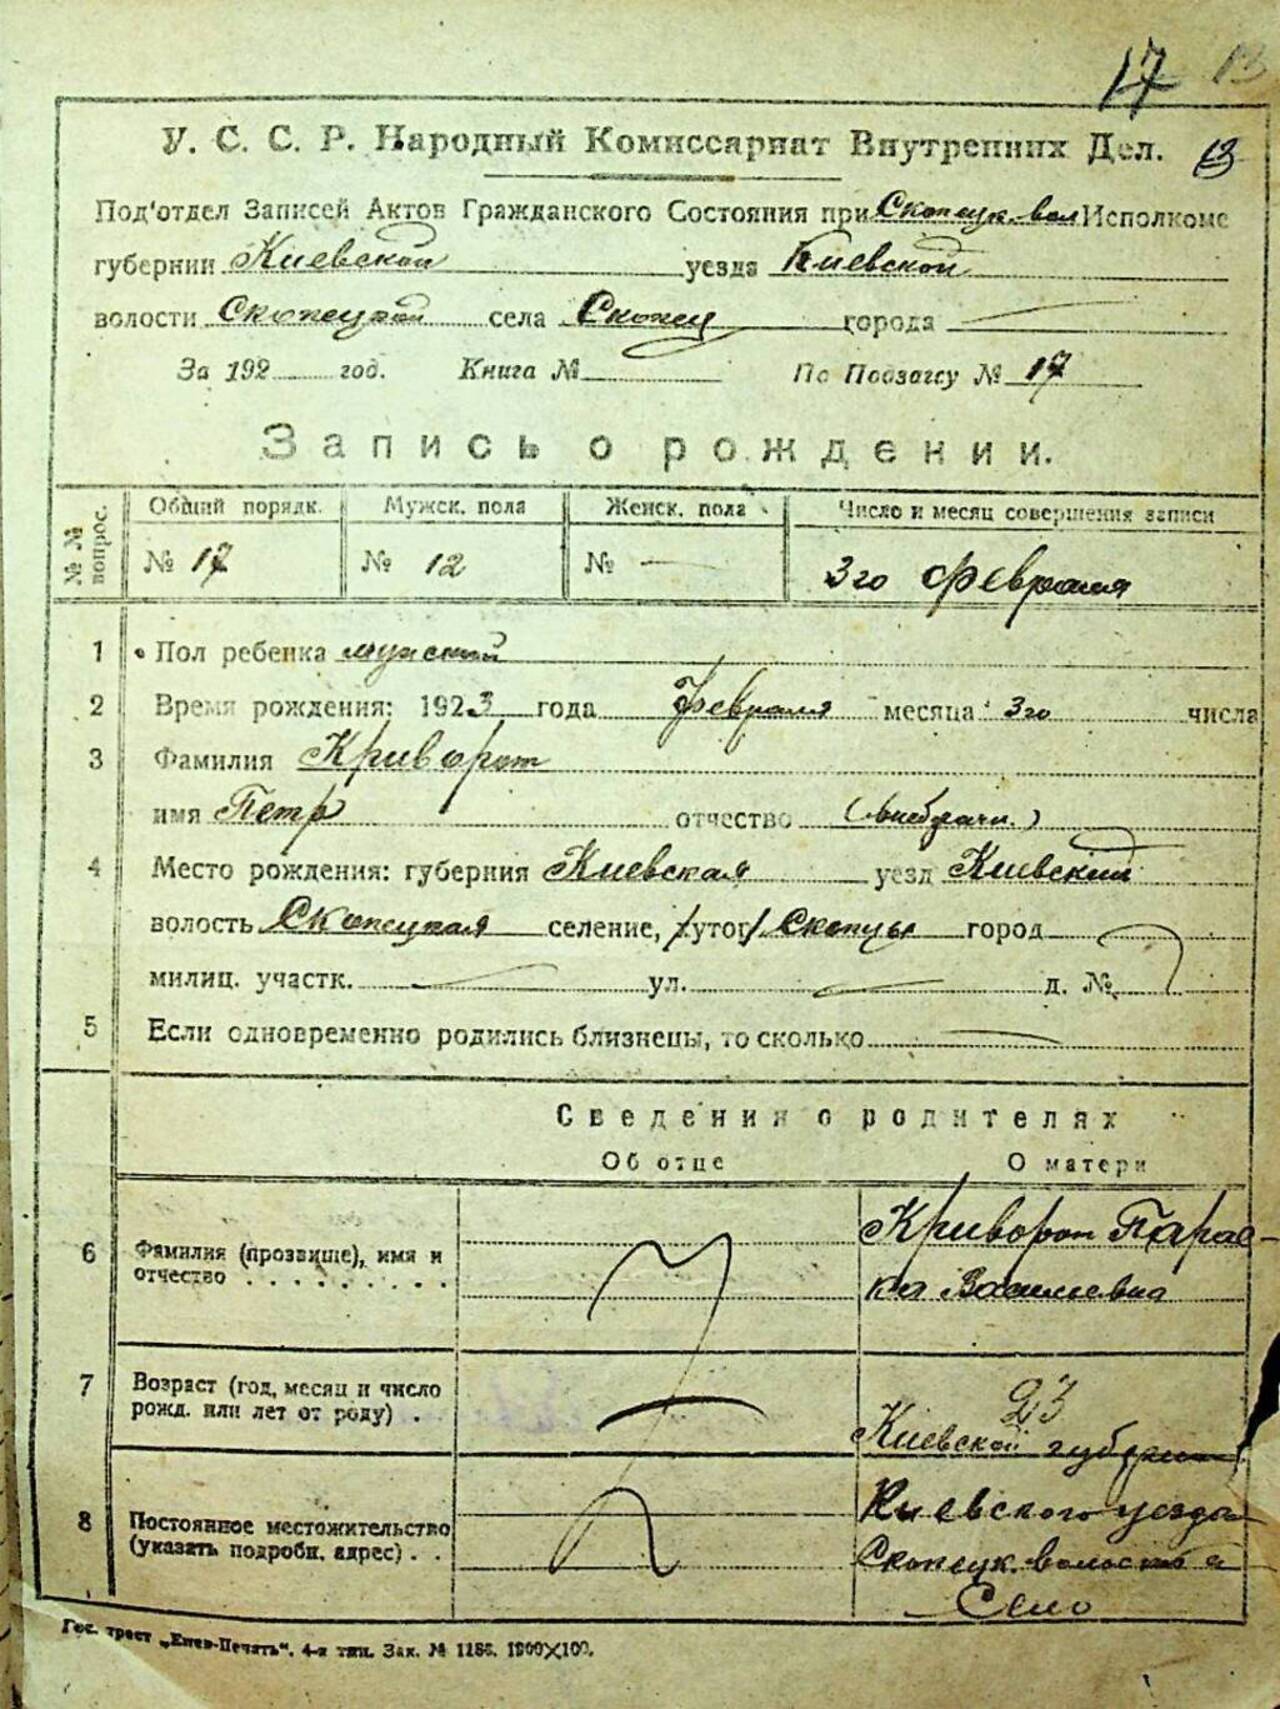 17 13
У. С. С. Р. Народный Комиссариат Внутренних Дел. 13
Под'отдел Записей Актов Гражданского Состояния при Скопецк. вол Исполкоме
губернии Киевской уезда Киевской
волости Скопецкой села Скопец города
За 192 год. Книга № По Подзагсу № 17
Запись о рождении.
№ № вопрос.
Общий порядк. Мужск. пола Женск. пола Число и месяц совершения записи
№ 17 № 12 № — 3го февраля
1 Пол ребенка мужской
2 Время рождения: 1923 года февраля месяца 3го числа
3 Фамилия Криворот
имя Петр отчество (внебрачн.)
4 Место рождения: губерния Киевская уезд Киевский
волость Скопецкая селение, /хутор/ Скопцы город
милиц. участк. — ул. — д. №
5 Если одновременно родились близнецы, то сколько —
Сведения о родителях
Об отце О матери
6 Фамилия (прозвище), имя и Криворот Парас-
отчество . . . . . . . . . ка Васильевна
7 Возраст (год, месяц и число 23
рожд. или лет от роду) . —
Киевской губернии
8 Постоянное местожительство Киевского уезда
(указать подробн. адрес) . . Скопецк. волости
Село
Гос. трест „Киев-Печать“. 4-я тип. Зак. № 1186. 1900×100.